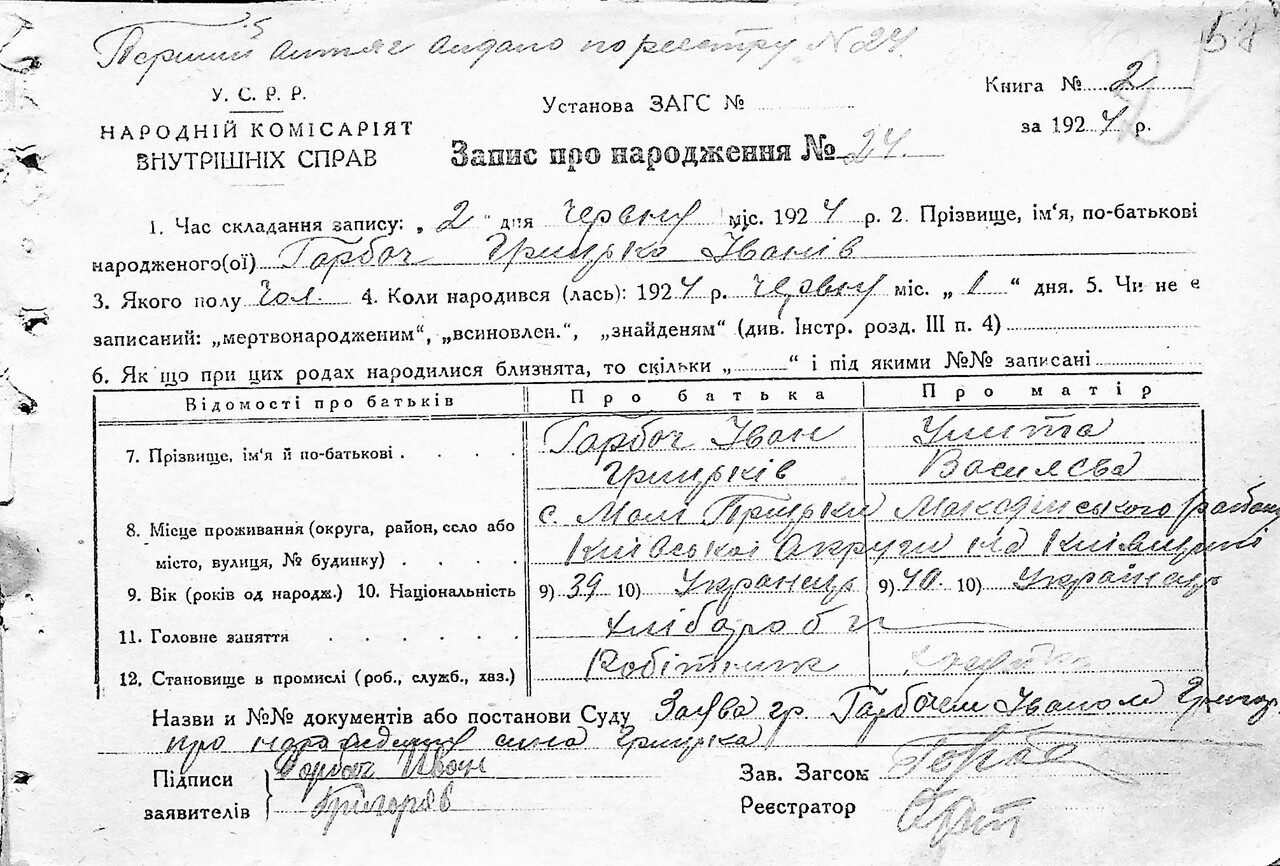 Перший витяг видано по реєстру N 24.
У. С. Р. Р.
НАРОДНІЙ КОМІСАРІЯТ
ВНУТРІШНІХ СПРАВ
Установа ЗАГС №
Книга № 2
за 1924 р.
Запис про народження № 24.
1. Час складання запису: „ 2 “ дня Червня міс. 1924 р. 2. Прізвище, ім‘я, по-батькові
народженого(ої) Гарбоч Грицько Іванів
3. Якого полу Чол. 4. Коли народився (лась): 1924 р. Червня міс. „ 1 “ дня. 5. Чи не є
записаний: „мертвонародженим“, „всиновлен.“, „знайденям“ (див. Інстр. розд. III п. 4)
6. Як що при цих родах народилися близнята, то скільки „ “ і під якими №№ записані
Відомості про батьків Про батька Про матір
7. Прізвище, ім‘я й по-батькові Гарбоч Іван Грицьків Улита Василєва
8. Місце проживання (округа, район, село або
місто, вулиця, № будинку)
с. Мали Макарівського району
Київської Округи на Київщині
9. Вік (років од народж.) 10. Національність 9) 39 10) Українець 9) 40. 10) Українець
11. Головне заняття Хлібороби
12. Становище в промислі (роб., служб., хаз.) Робітник
Назви и №№ документів або постанови Суду Заява гр. Гарбочем Іваном Григор
про народження сина Грицька
Підписи
заявителів
Гарбоч Иван
Григорів
Зав. Загсом
Реєстратор